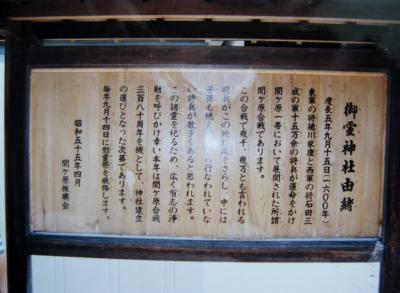 御霊神社由緒
慶長五年九月十五日(一六〇〇年)
東軍の将徳川家康と西軍の将石田三
成の軍十五万余の将兵が運命をかけ
関ケ原一帯において展開された所謂
関ケ原合戦であります。
この合戦で幾千、幾万とも言われる
将兵がこの地に屍をさらし、中には
子孫も絶え 行なわれていな
い将兵が数多くあると思われます。
この諸霊を祀るため、広く有志の浄
財を呼びかけ幸い本年は関ケ原合戦
三百八十周年を機として、神社建立
の運びとなった次第であります。
毎年九月十四日に慰霊祭を執行します。
昭和五十五年四月
関ケ原振興会